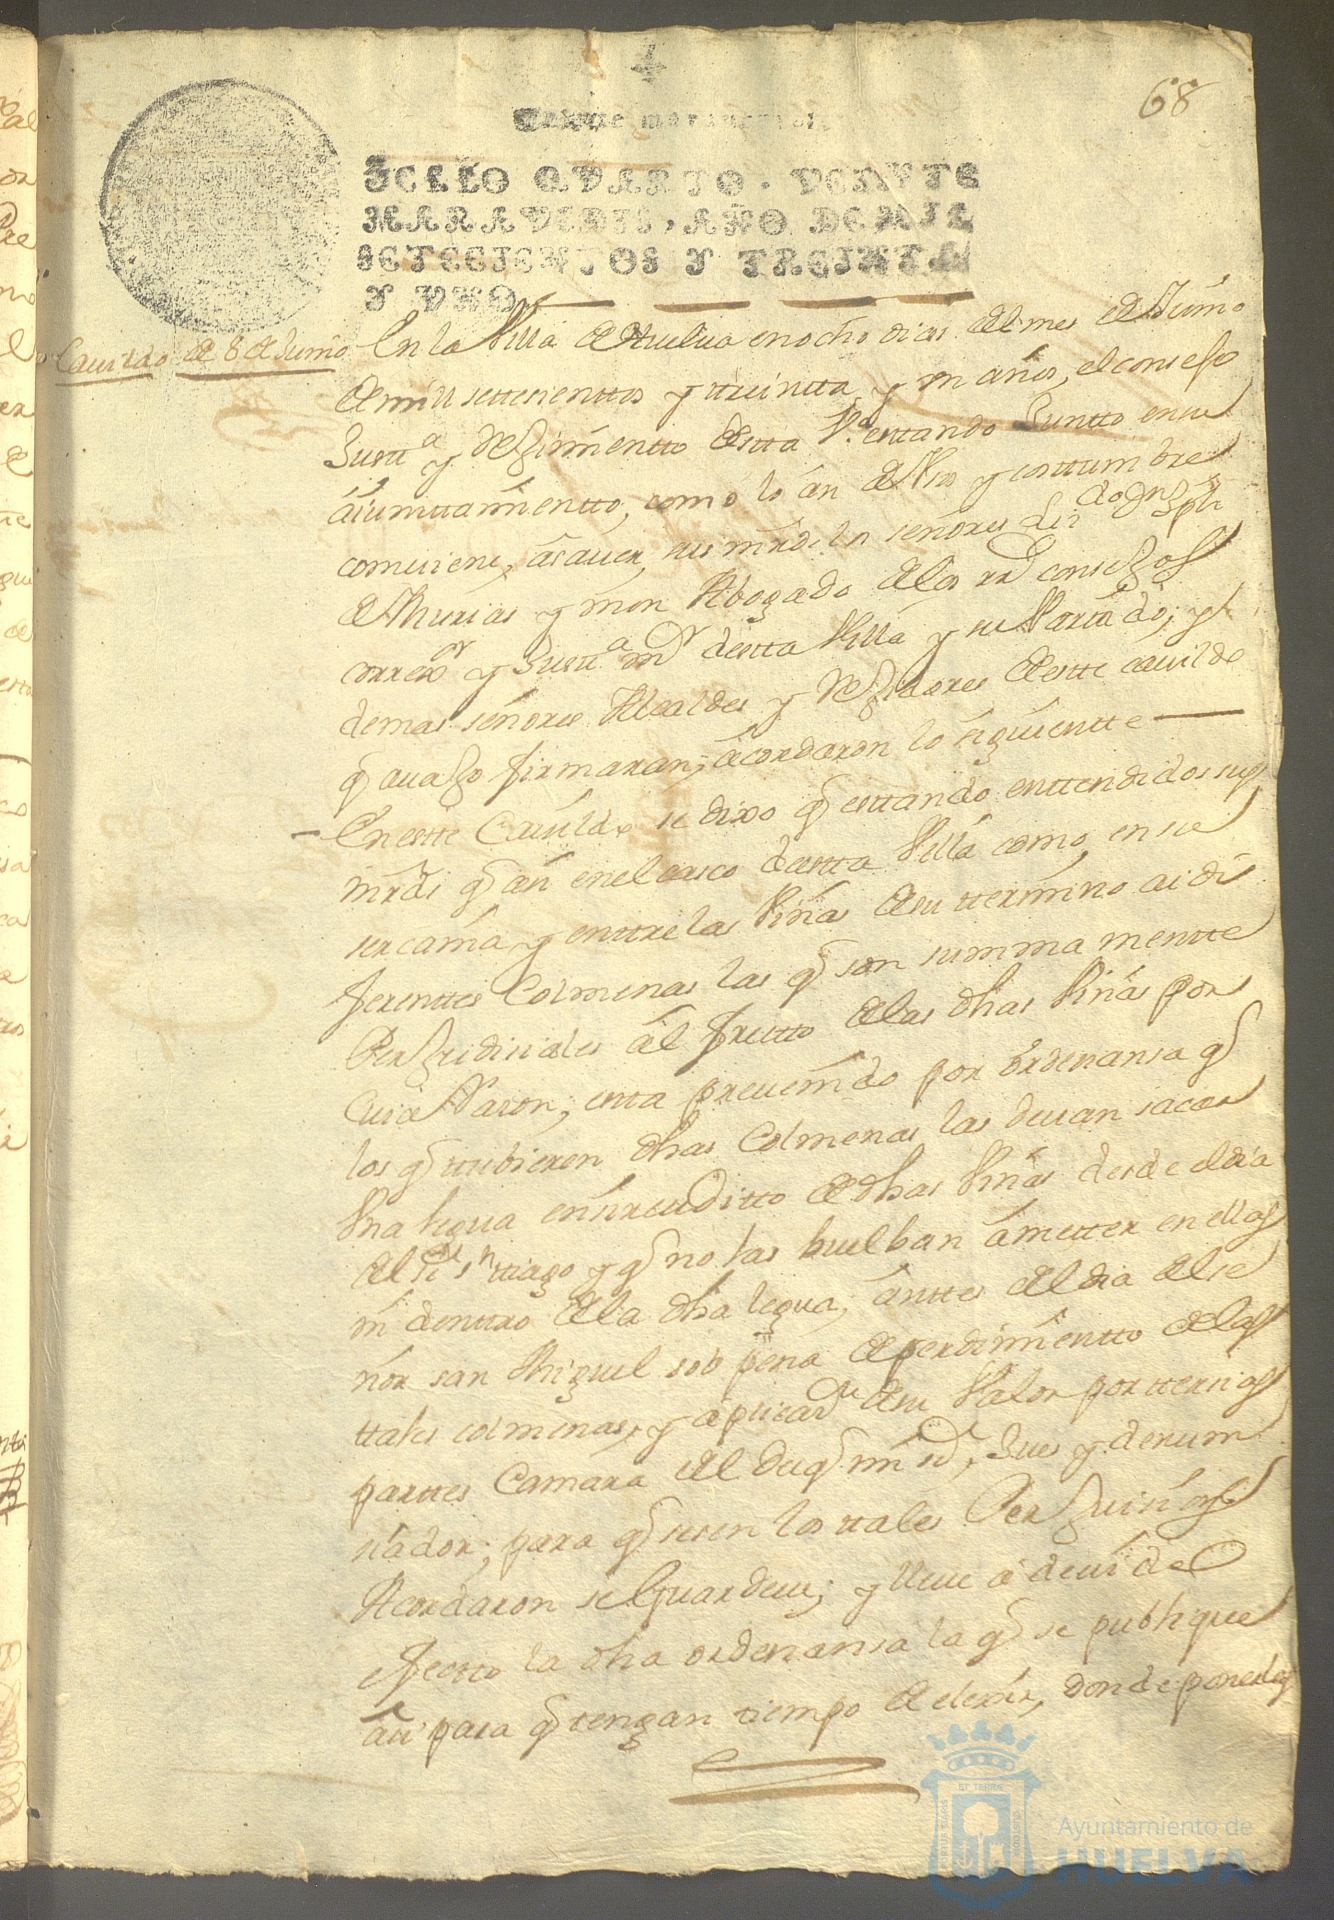 68
SELLO QVARTO. VEINTE
MARAVEDIS, AÑO DE MIL
SETECIENTOS Y TREINTA
Y VNO
Cauildo de 8 de Junio
En la Villa de Huelua en ocho dias del mes de Junio
de mill settesienttos y ttreintta y un años, el consejo
Justtᵃ y Rejimientto destta Vᵃ estando Juntto en su
aiunttamientto, como lo án de Uso y costtumbre
combiene, á sauer, sus mrds los señores Liz do Dn Jph
de Murias y mon Abogado de los rs consejos
correxor y Justtᵃ mr destta Villa y su Marᵈᵒ, y
demas señores Alcaldes y Rejidores deste cauildo
q auajo firmaran, acordaron lo siguientte
En estte Cauildo se dixo q estando enttendidos sus
mrds q án en el casco destta Villa como, en su
sercania, y enttre las Viñas de su ttermino ai di
ferenttes Colmenas las q son summamentte
Perjudisiales ál frutto de las dhas Viñas por
Cuia Rason, esta preuenido por órdenansa q
los q ttubieren dhas Colmenas las deuan sacar
Una legua en sircuitto de dhas Viñas desde el dia
del sr Sn ttiago y q no las buelban á metter en ellas
ni dentro de la dha legua, ánttes del dia del se
ñor san Miguel sob pena de perdimientto de las
ttales colmenas, y aplicadᵒ de su Valor por ttersias
parttes Camara del Duq mi sr, Jues y denun
siador, para q sesen los ttales Perjuisios
Acordaron se Guarde, y lleue á deuido
efectto la dha ordenansa la q se publique
asi para q tengan tiempo de elexir, donde ponerlas
Ayuntamiento de
HUELVA